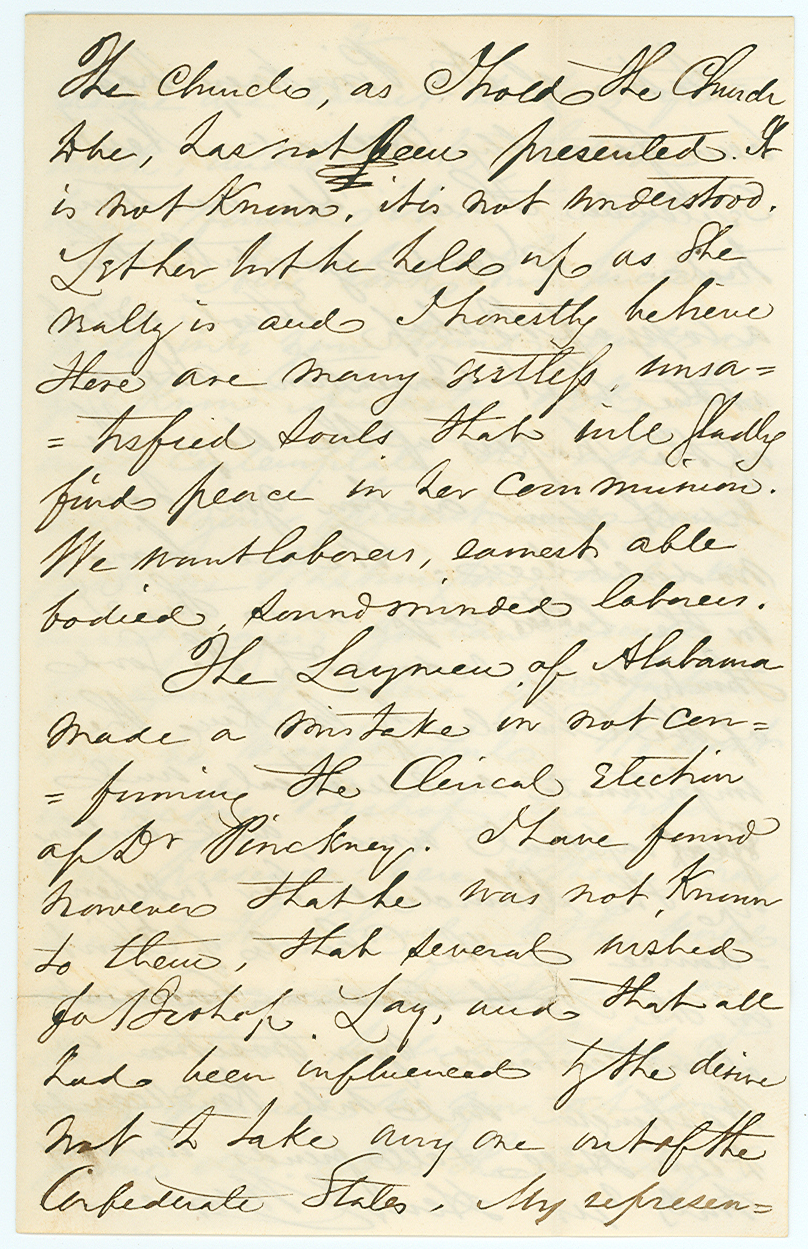 The Church, as I hold the Church
to be, has not been presented. It
is not known, it is not understood.
Let her but be held up as She
really is and I honestly believe
there are many restless, unsa=
=tisfied souls that will gladly
find peace in her Communion.
We want laborers, earnest able
bodied, sound minded laborers.
The Laymen of Alabama
made a mistake in not con=
=firming the Clerical Election
of Dr Pinckney. I have found
however that he was not known
to them, that several wished
for Bishop Lay, and that all
had been influenced by the desire
not to take any one out of the
Confederate States. My represen=